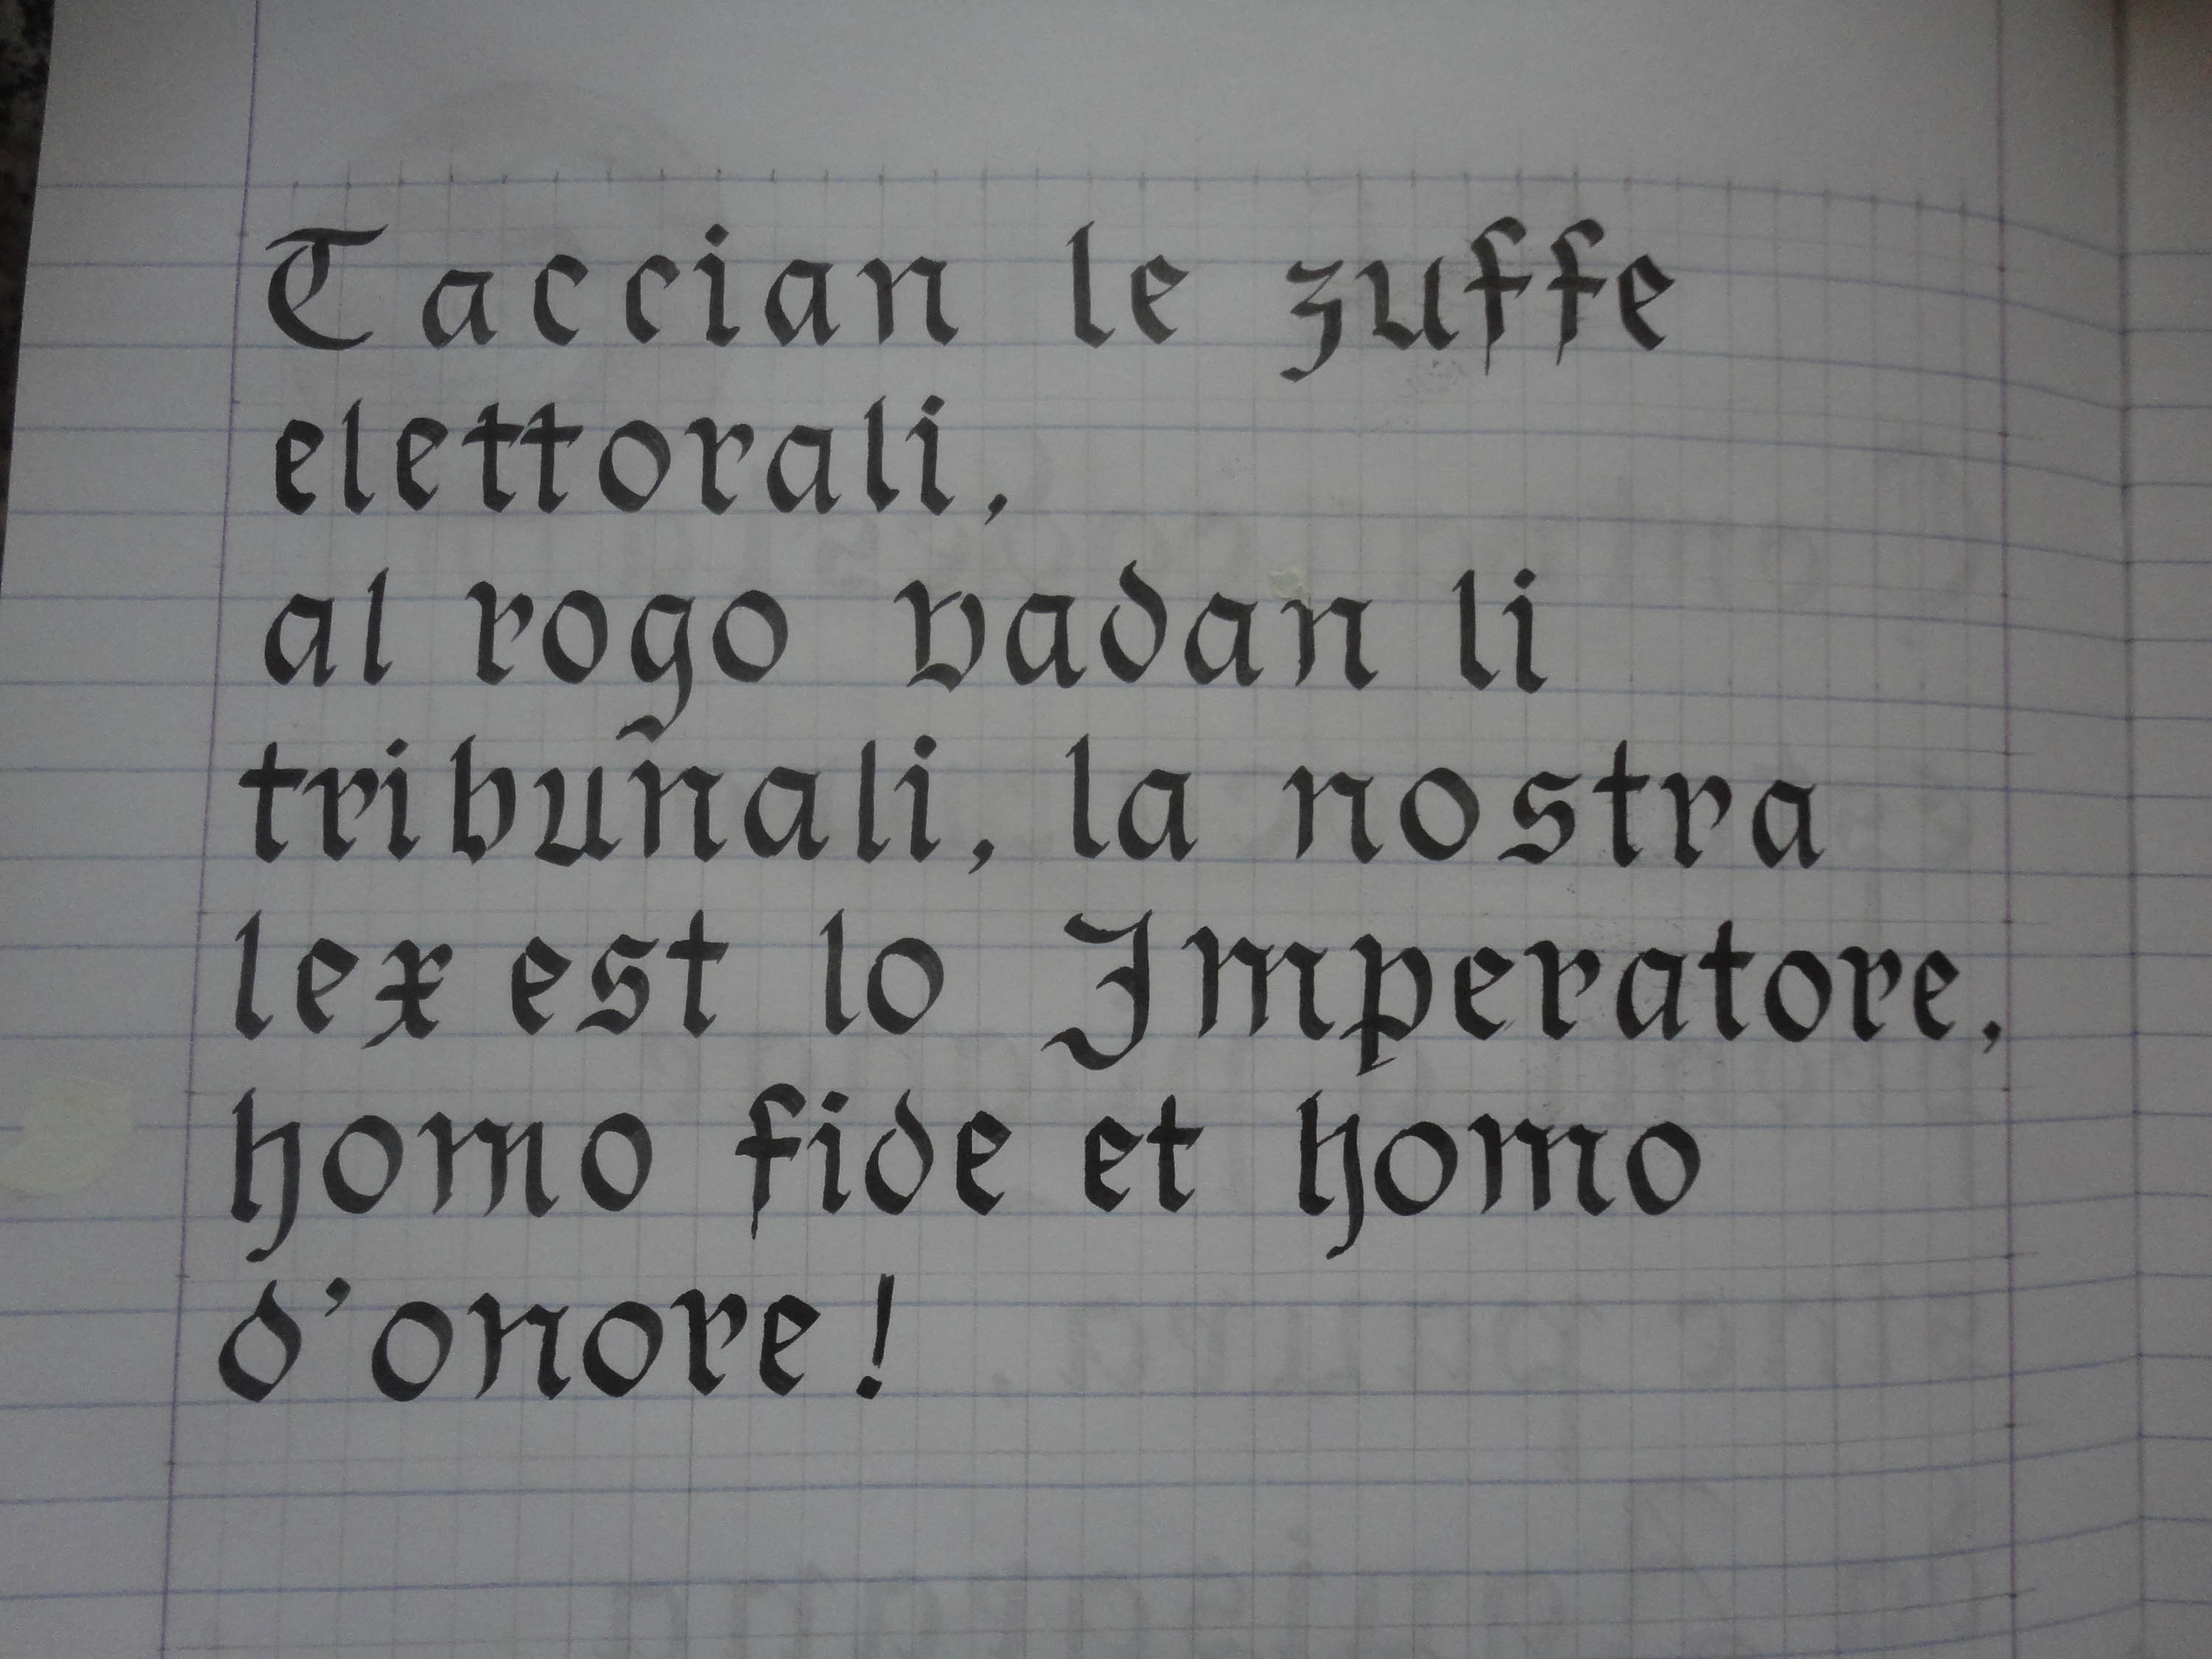 Taccian le zuffe
elettorali,
al rogo vadan li
tribunali, la nostra
lex est lo Imperatore,
homo fide et homo
d'onore!